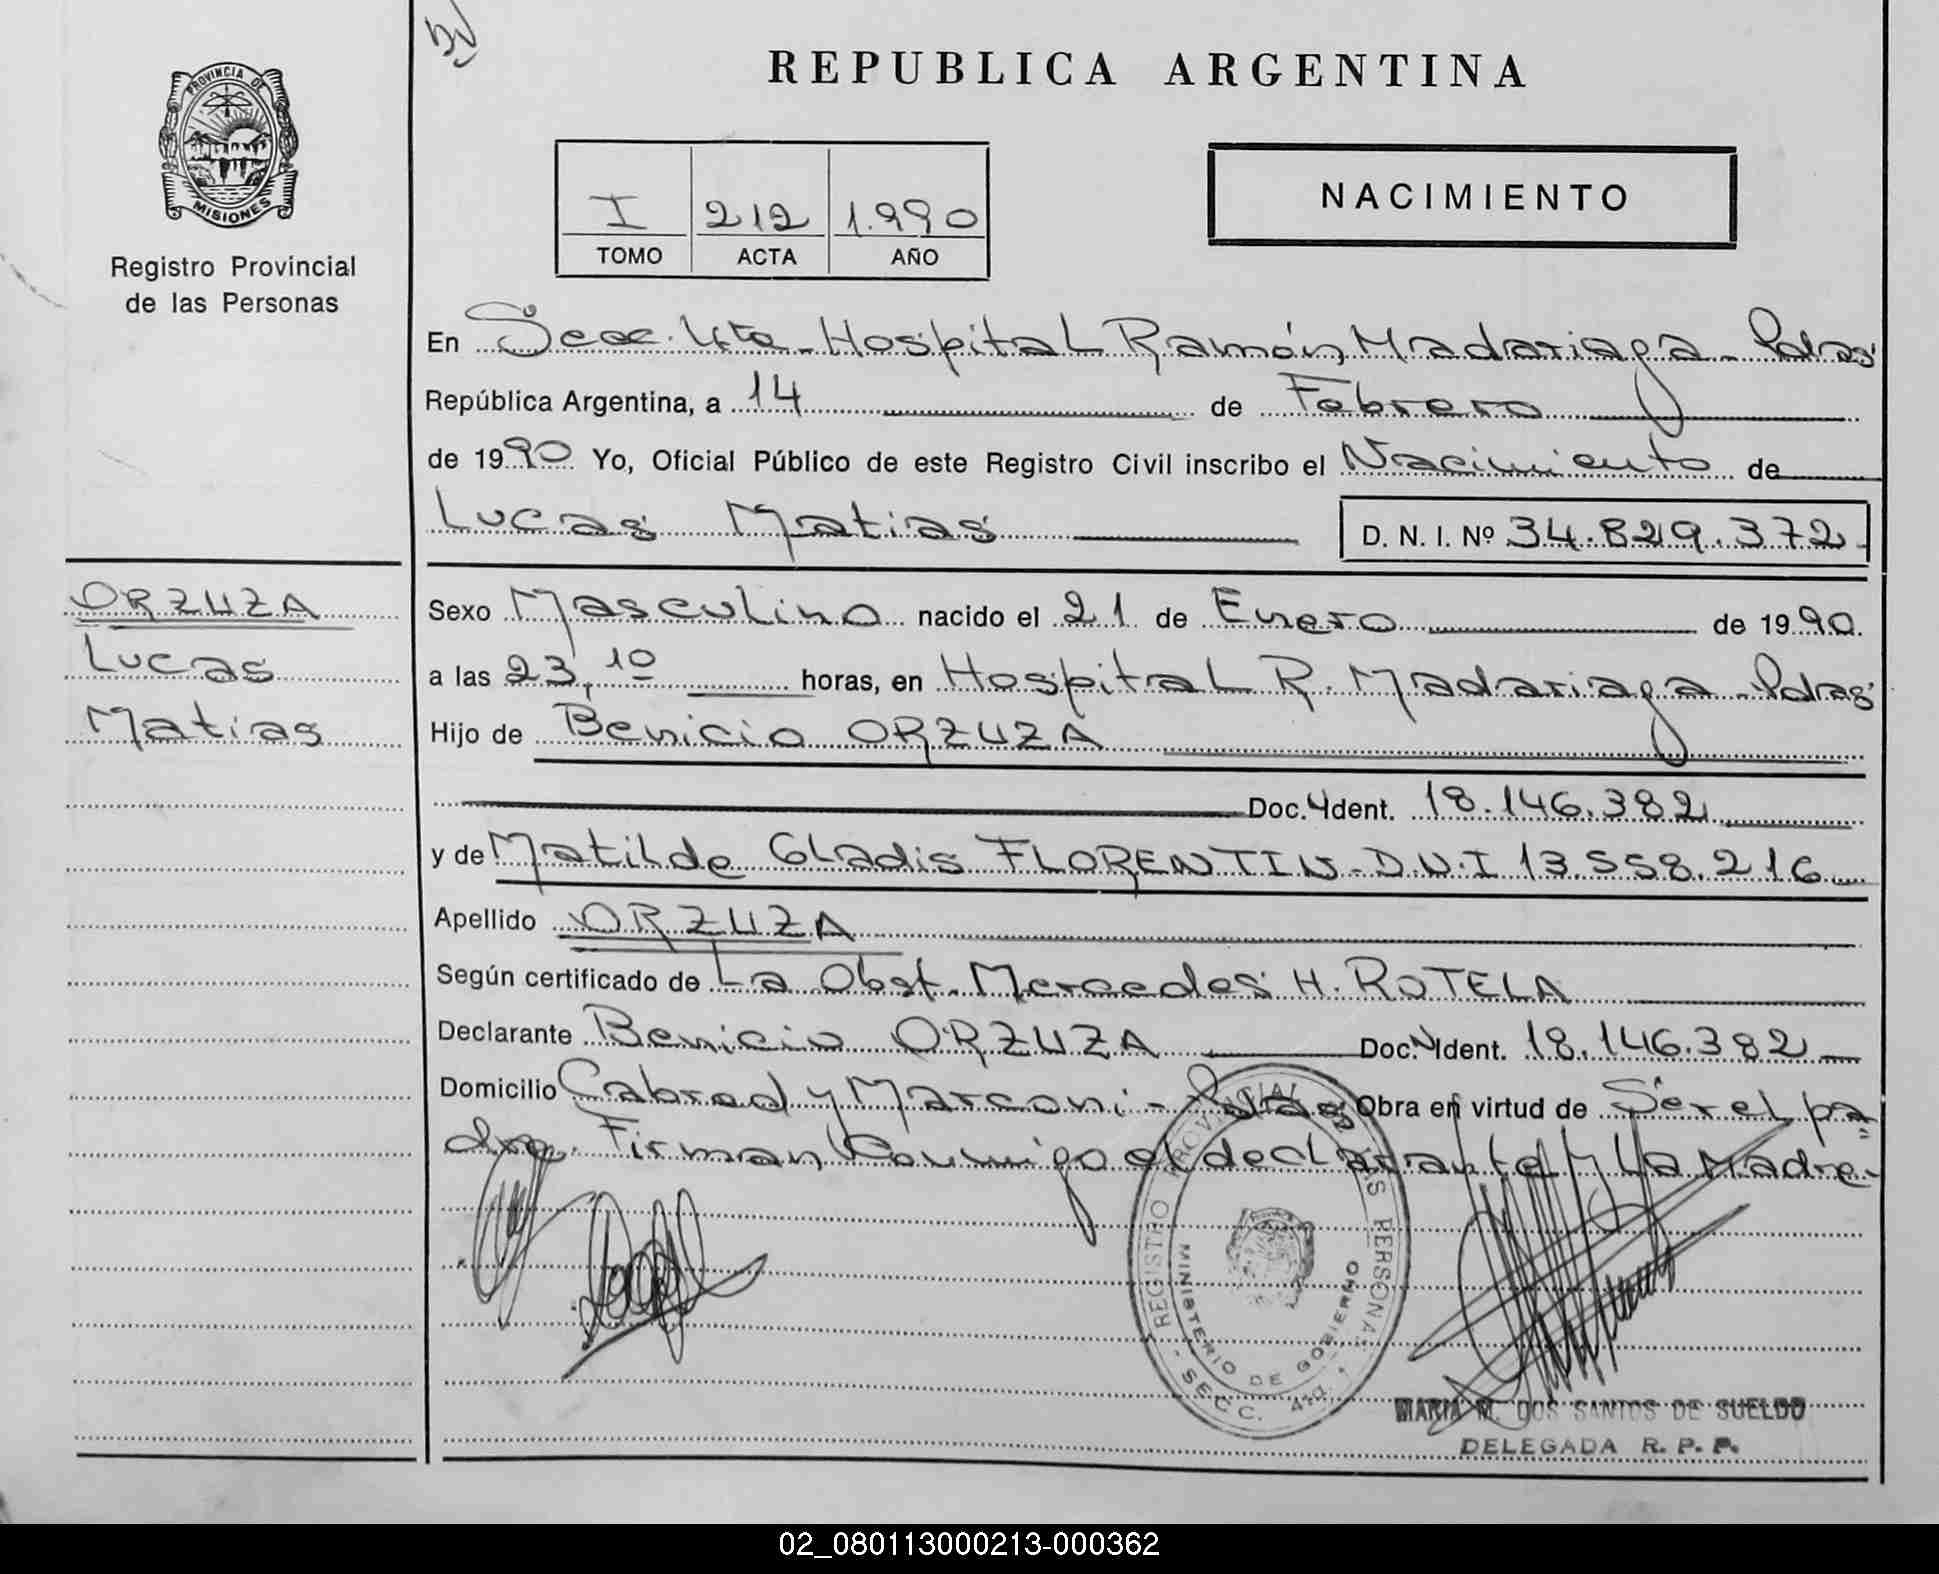 REPUBLICA ARGENTINA
PROVINCIA DE
MISIONES
Registro Provincial
de las Personas
I 212 1.990
TOMO ACTA AÑO
NACIMIENTO
En Secc. 4ta - Hospital Ramón Madariaga - Pdas
República Argentina, a 14 de Febrero
de 1990 Yo, Oficial Público de este Registro Civil inscribo el Nacimiento de
Lucas Matias D. N. I. Nº 34.829.372
ORZUZA
Lucas
Matias
Sexo Masculino nacido el 21 de Enero de 1990.
a las 23,10 horas, en Hospital R. Madariaga - Pdas
Hijo de Benicio ORZUZA
Doc. Ident. 18.146.382
y de Matilde Gladis FLORENTIN - D.N.I 13.558.216
Apellido ORZUZA
Según certificado de La Obst. Mercedes H. ROTELA
Declarante Benicio ORZUZA Doc. Ident. 18.146.382
Domicilio Cabred y Marconi - Pdas Obra en virtud de Ser el pa=
dre. Firman Conmigo el declarante y La Madre.-
REGISTRO PROVINCIAL LAS PERSONAS
MINISTERIO DE GOBIERNO
- SECC. 4ta. -
MARIA M. DOS SANTOS DE SUELDO
DELEGADA R. P. P.
02_080113000213-000362